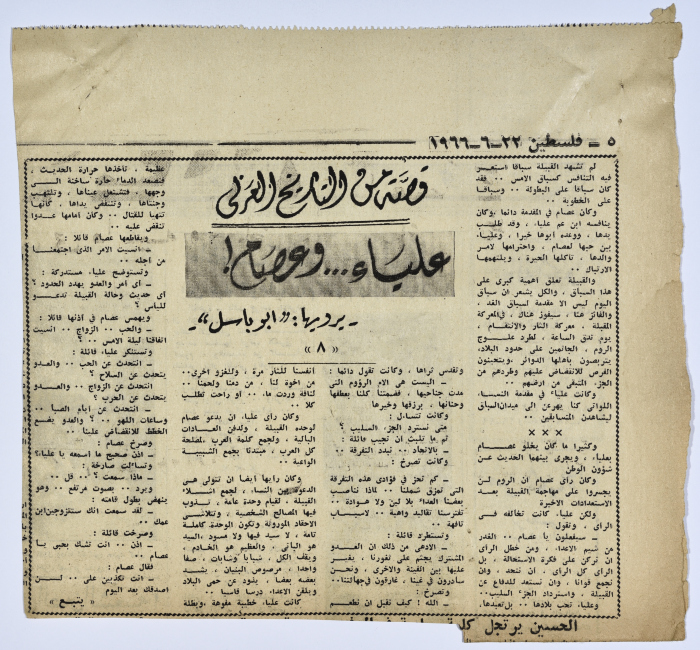 ٥ ـ فلسطين ٢٣ـ٦ـ١٩٦٦
قصة من التاريخ العربي
علياء... وعصام !
ـ يرويها : «ابو باسل» ـ
« ٨ »
لم تشهد القبيلة سباقا استعر
فيه التنافس كسباق الامس .. فقد
كان سباقا على البطولة .. وسباقا
على الخطوبة ..
وكان عصام في المقدمة دائما ،وكان
ينافسه ابن عم علياء ، وقد طلب
يدها ، ووعده ابوها خيرا ، وعلياء
بين حبها لعصام ، واحترامها لامر
والدها ، تأكلها الحيرة ، ويلتهمها
الارتباك ..
والقبيلة تعلق اهمية كبرى على
هذا السباق ، والكل يشعر ان سباق
اليوم ليس الا مقدمة لسباق الغد ،
والفائز هنا ، سيفوز هناك ، في المعركة
المقبلة ، معركة الثار والانتقام ،
يوم تدق الساعة ، لطرد علوج
الروم ، الجاثمين على حدود البلاد،
يتربصون بأهلها الدوائر ،ويتحينون
الفرص للانقضاض عليهم وطردهم من
الجزء المتبقي من ارضهم ..
وكانت علياء في مقدمة النساء
اللواتي كنا يهرعن الى ميدان السباق
ليشاهدن المتسابقين ..
× × ×
وكثيرا ما كان يخلو عصام
بعلياء ، ويجري بينهما الحديث عن
شؤون الوطن
وكان رأي عصام ان الروم لن
يجسروا على مهاجمة القبيلة بعد
الاستعدادات الاخيرة
ولكن علياء كانت تخالفه في
الرأي ، وتقول :
ـ سيفعلون يا عصام .. الغدر
من شيم الاعداء ، ومن خطل الرأي
ان نركن على فكرة الاستحالة ، بل
الرأي كل الرأي ، ان نتحد ، وان
نجمع قوانا ، وان نستعد للدفاع عن
القبيلة ، واسترداد الجزء السليب..
وعلياء تحب بلادها .. بل تعبدها،
وتقدس ثراها ، وكانت تقول دائما :
ـ اليست هي الام الرؤوم التي
مدت جناحيها ، فضمتنا كلنا بعطفها
وحنانها ، برزقها وخيرها
وكانت تتساءل :
متى نسترد الجزء السليب ؟
ثم ما تلبث ان تجيب قائلة :
ـ بالاتحاد .. نبدد التفرقة ..
وكانت تصرخ :
ـ كم تحز في فؤادي هذه التفرقة
التي تمزق شملنا .. لماذا نناصب
بعضنا العداء بلا لين ولا هوادة ..
تفترسنا تقاليد واهية .. لاسباب
تافهة ..
وتستطرد قائلة :
ـ الادهى من ذلك ان العدو
المشترك يجثم على ثغورنا ، يغير
عليها بين الفينة والاخرى ، ونحن
سادرون في غينا ، غارقون في جهالتنا..
وتصرخ :
ـ الله : كيف نقبل ان نطعم
انفسنا للثار مرة ، وللغزو اخرى..
من اخوة لنا ، من دمنا ولحمنا ..
لناقة وردت ماء .. او راحت تطلب
كلا ..
وكان رأي علياء ان يدعو عصام
لوحدة القبيلة ، ولدفن العادات
البالية ، ولجمع كلمة العرب ،لمصلحة
كل العرب ، مبتدئا بجمع الشبيبة
الواعية ..
وكان رأيها ايضا ان تتولى هي
الدعوة بين النساء ، لجمع نساء
القبيلة ، لقيام وحدة عامة ، تذوب
فيها المصالح الشخصية ، وتتلاشى
الاحقاد الموروثة وتكون الوحدة كاملة
تامة ، لا سيد فيها ولا مسود ،السيد
هو الباني ، والعظيم هو الخادم ،
ويقف الكل ، شبابا وشابات ، صفا
واحدا ، مرصوص البنيان ، يشد
بعضه بعضا ، يذود عن حمى البلاد
ويلقن الاعداء درسا قاسيا ..
كانت علياء خطيبة مفوهة ،وبطلة
عظيمة ، تأخذها حرارة الحديث ،
فتصعد الدماء حارة ساخنة الى
وجهها ، فتشتعل عيناها ، وتلتهب
وجنتاها ، وتنتفض يداها ، كأنها
تتهيأ للقتال .. وكأن امامها عدوا
تنقض عليه ..
ويقاطعها عصام قائلا :
ـ انسيت الامر الذي اجتمعنا
من اجله ..
وتستوضح علياء مستدركة :
ـ اي امر والعدو يهدد الحدود ؟
اي حديث وحالة القبيلة تدعو
للياس ؟
ويهمس عصام في أذنها قائلا :
ـ والحب .. الزواج .. انسيت
اتفاقنا ليلة الامس .. ؟
وتستنكر علياء قائلة :
ـ انتحدث عن الحب .. والعدو
يتحدث عن السلاح ؟
انتحدث عن الزواج .. والعدو
يتحدث عن الحرب ؟
ـ انتحدث عن ايام الصبا ..
وساعات اللهو .. ؟ والعدو يضع
الخطط للانقضاض علينا ..
وصرخ عصام :
ـ اذن صحيح ما اسمعه يا علياء؟
وتساءلت صارخة :
ـ ماذا سمعت ؟ .. قل ..
ويرد .. بصوت مرتفع .. وهو
ينهض بطول قامته :
ـ لقد سمعت انك ستتزوجين ابن
عمك ..
وصرخت قائلة :
ـ اذن .. انت تشك بحبي يا
عصام ..
فقال عصام :
ـ انت تكذبين علي .. لن
اصدقك بعد اليوم
« يتبع »
الحسين يرتجل